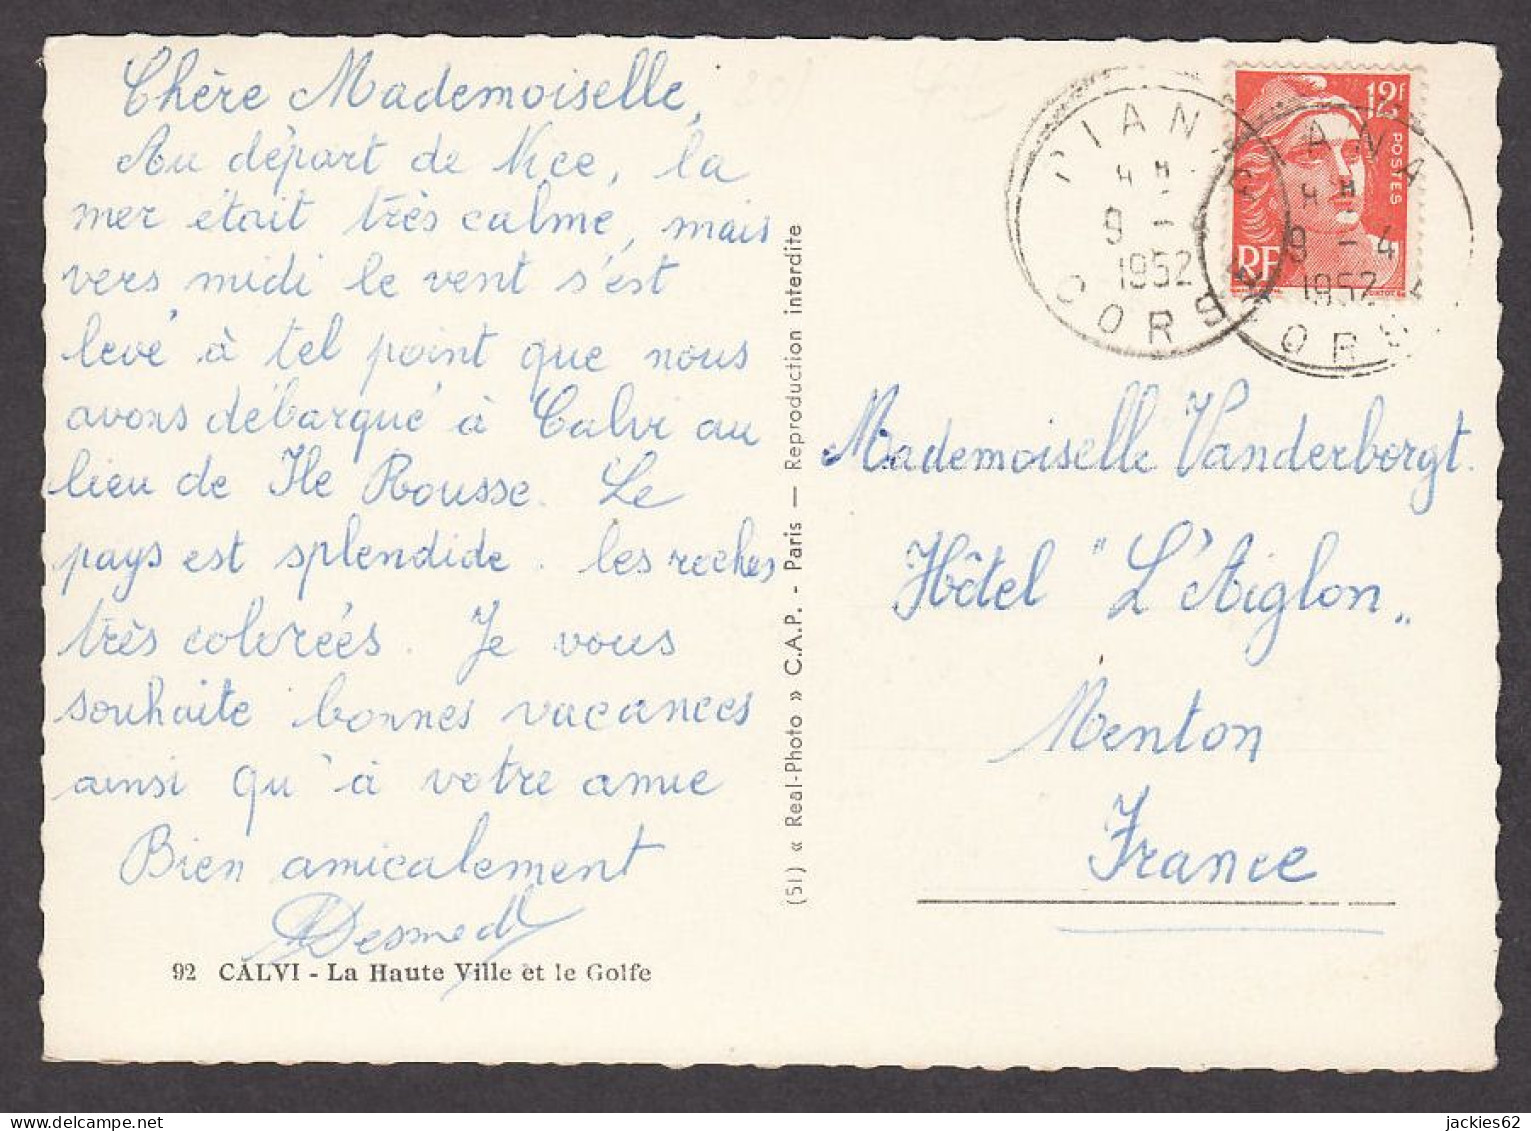 Chère Mademoiselle,
Au départ de Nice, la
mer était très calme, mais
vers midi le vent s'est
levé à tel point que nous
avons débarqué à Calvi au
lieu de Ile Rousse. Le
pays est splendide. les roches
très colorées. Je vous
souhaite bonnes vacances
ainsi qu'à votre amie
Bien amicalement
Desmedt
92 CALVI - La Haute Ville et le Golfe
(51) « Real-Photo » C.A.P. - Paris — Reproduction interdite
PIANA
4 H
9 -
1952
CORSE
12F
POSTES
RF
ANA
4 H
9 - 4
1952
ORS
Mademoiselle Vanderborgt.
Hôtel "L'Aiglon„
Menton
France
jackies62